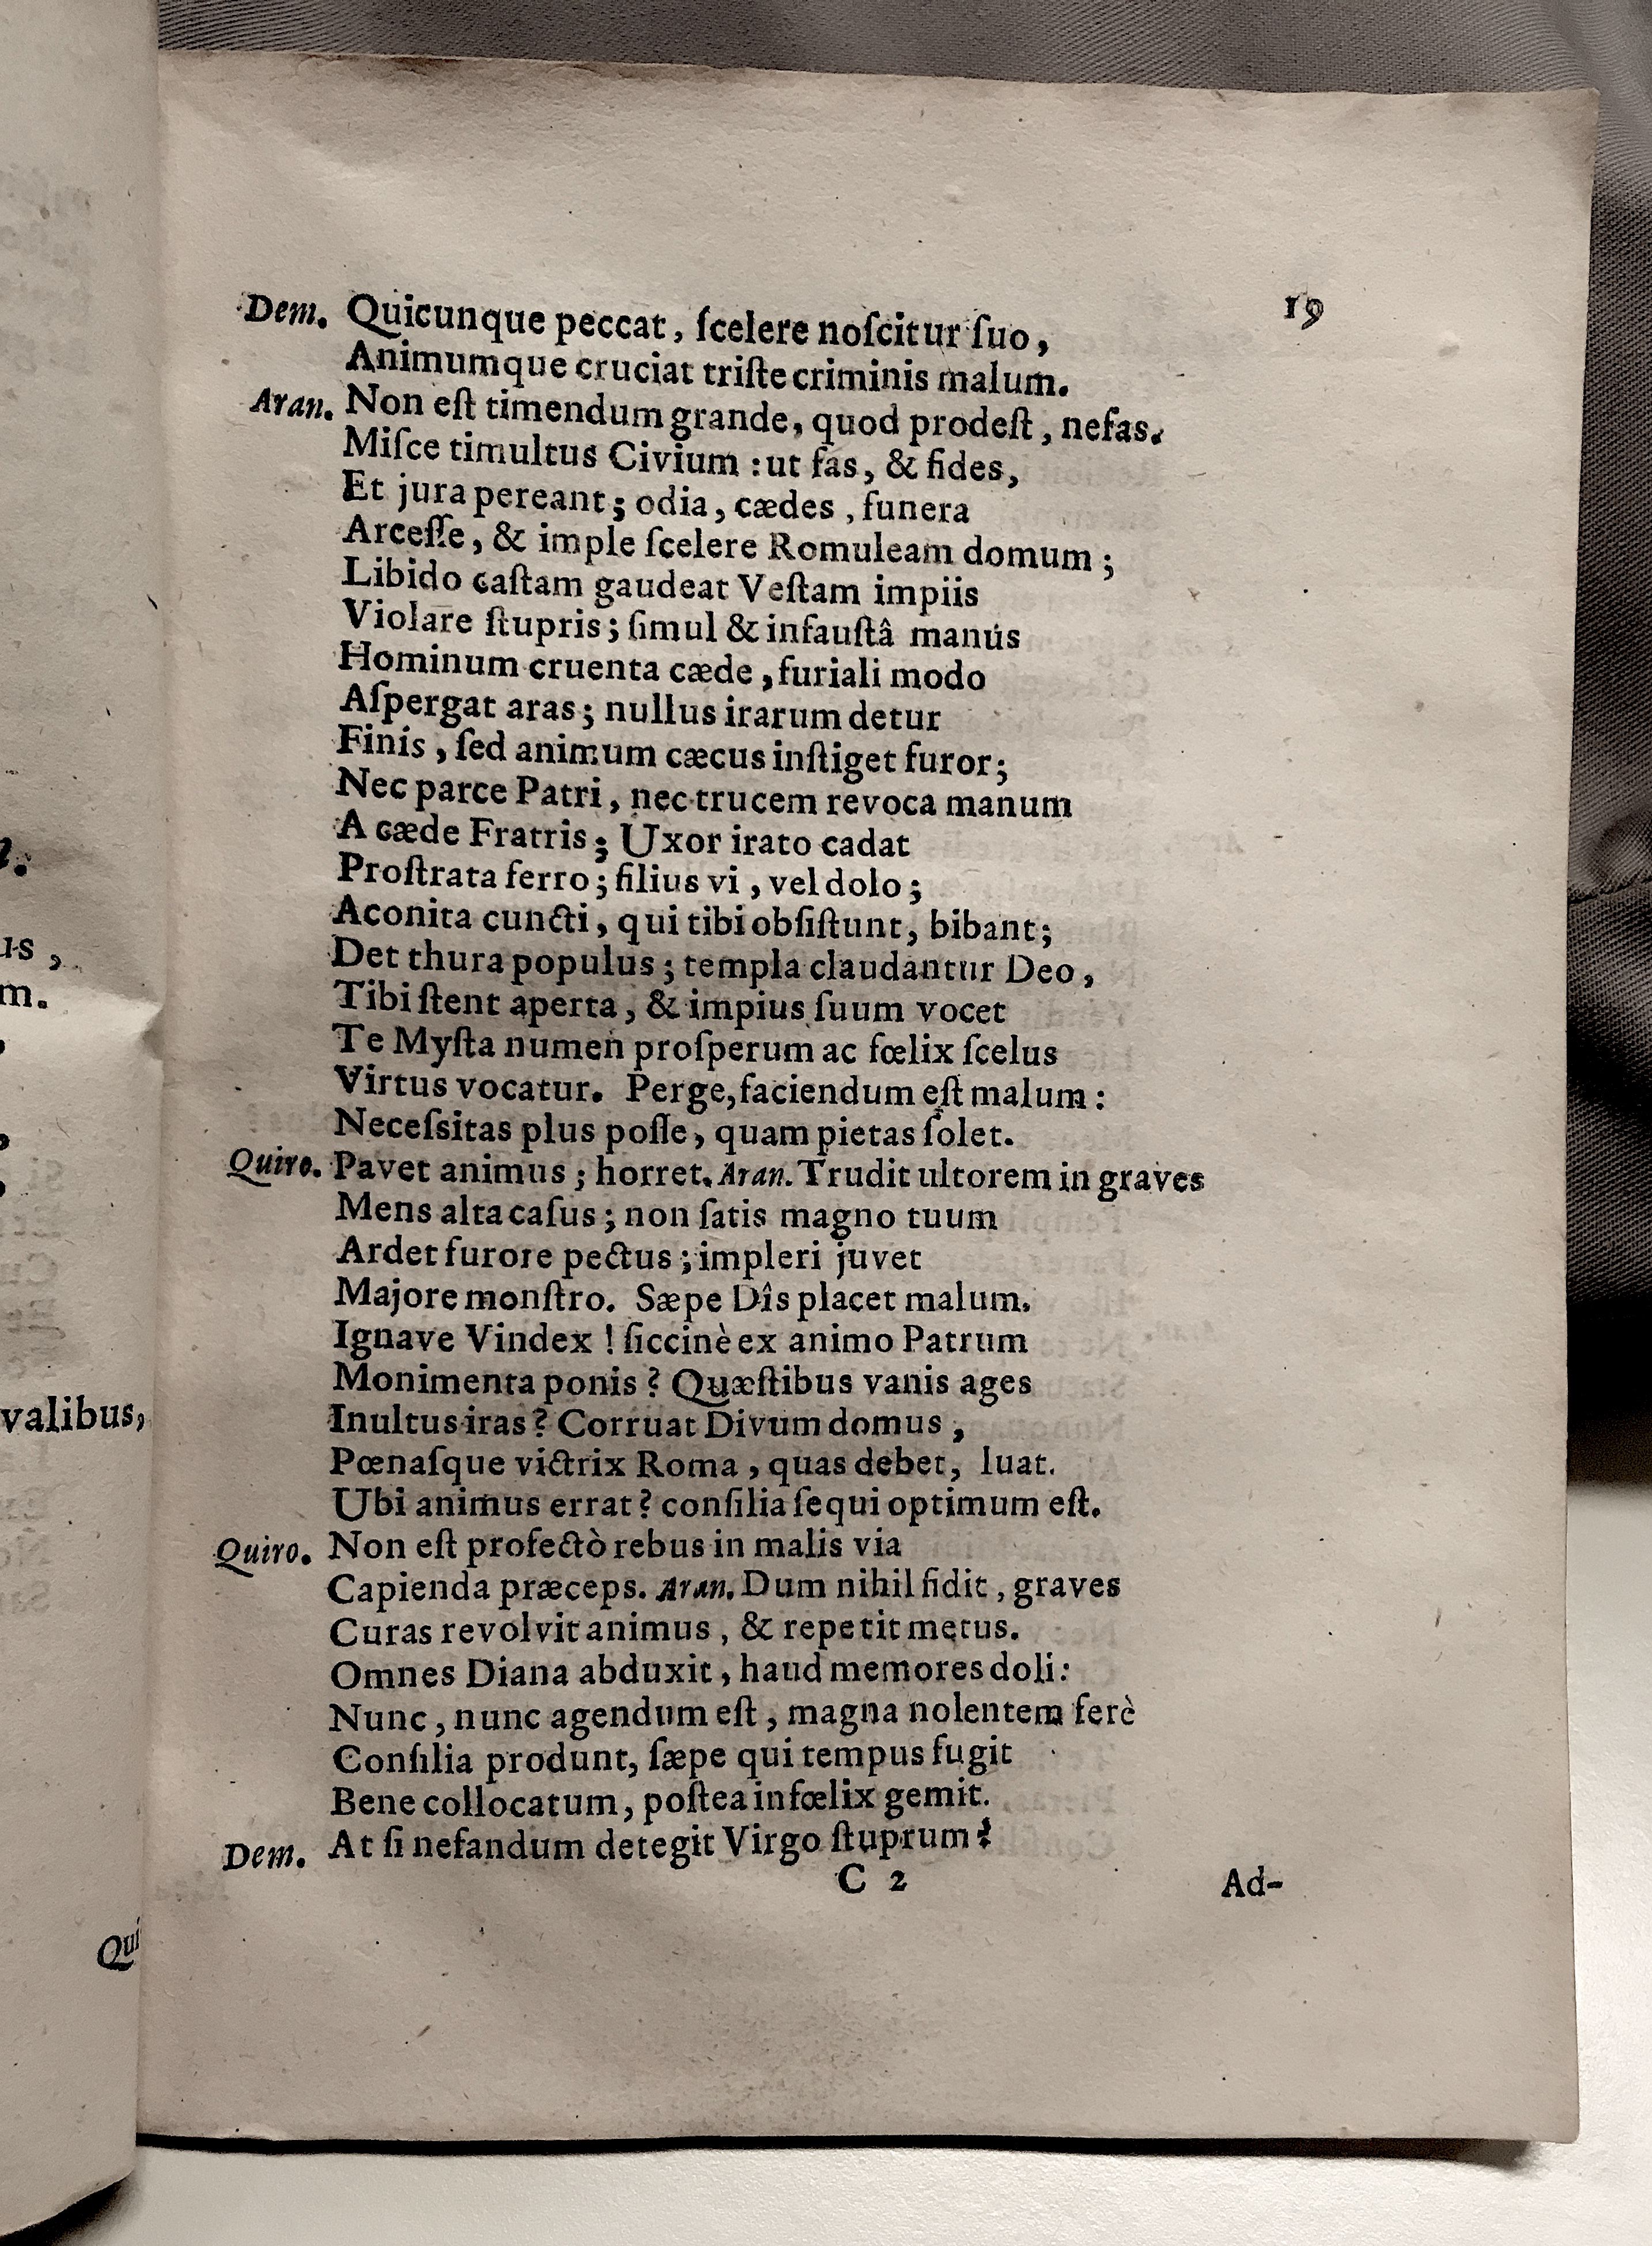 19
Dem. Quicunque peccat, ſcelere noſcitur ſuo,
Animumque cruciat triſte criminis malum.
Aran. Non eſt timendum grande, quod prodeſt, nefas.
Miſce timultus Civium : ut fas, & fides,
Et jura pereant; odia, cædes, funera
Arceſſe, & imple ſcelere Romuleam domum;
Libido caſtam gaudeat Veſtam impiis
Violare ſtupris; ſimul & infauſtâ manús
Hominum cruenta cæde, furiali modo
Aſpergat aras; nullus irarum detur
Finis, ſed animum cæcus inſtiget furor;
Nec parce Patri, nec trucem revoca manum
A cæde Fratris; Uxor irato cadat
Proſtrata ferro; filius vi, vel dolo;
Aconita cuncti, qui tibi obſiſtunt, bibant;
Det thura populus; templa claudantur Deo,
Tibi ſtent aperta, & impius ſuum vocet
Te Myſta numen proſperum ac fœlix ſcelus
Virtus vocatur. Perge, faciendum eſt malum:
Neceſsitas plus poſſe, quam pietas ſolet.
Quiro. Pavet animus; horret. Aran. Trudit ultorem in graves
Mens alta caſus; non ſatis magno tuum
Ardet furore pectus; impleri juvet
Majore monſtro. Sæpe Dîs placet malum.
Ignave Vindex! ſiccinè ex animo Patrum
Monimenta ponis? Quæſtibus vanis ages
Inultus iras? Corruat Divum domus,
Pœnaſque victrix Roma, quas debet, luat.
Ubi animus errat? conſilia ſequi optimum eſt.
Quiro. Non eſt profectò rebus in malis via
Capienda præceps. Aran. Dum nihil fidit, graves
Curas revolvit animus, & repetit metus.
Omnes Diana abduxit, haud memores doli:
Nunc, nunc agendum eſt, magna nolentem ferè
Conſilia produnt, ſæpe qui tempus fugit
Bene collocatum, poſtea infœlix gemit.
Dem. At ſi nefandum detegit Virgo ſtuprum?
C 2 Ad-
us,
m.
valibus,
Qui